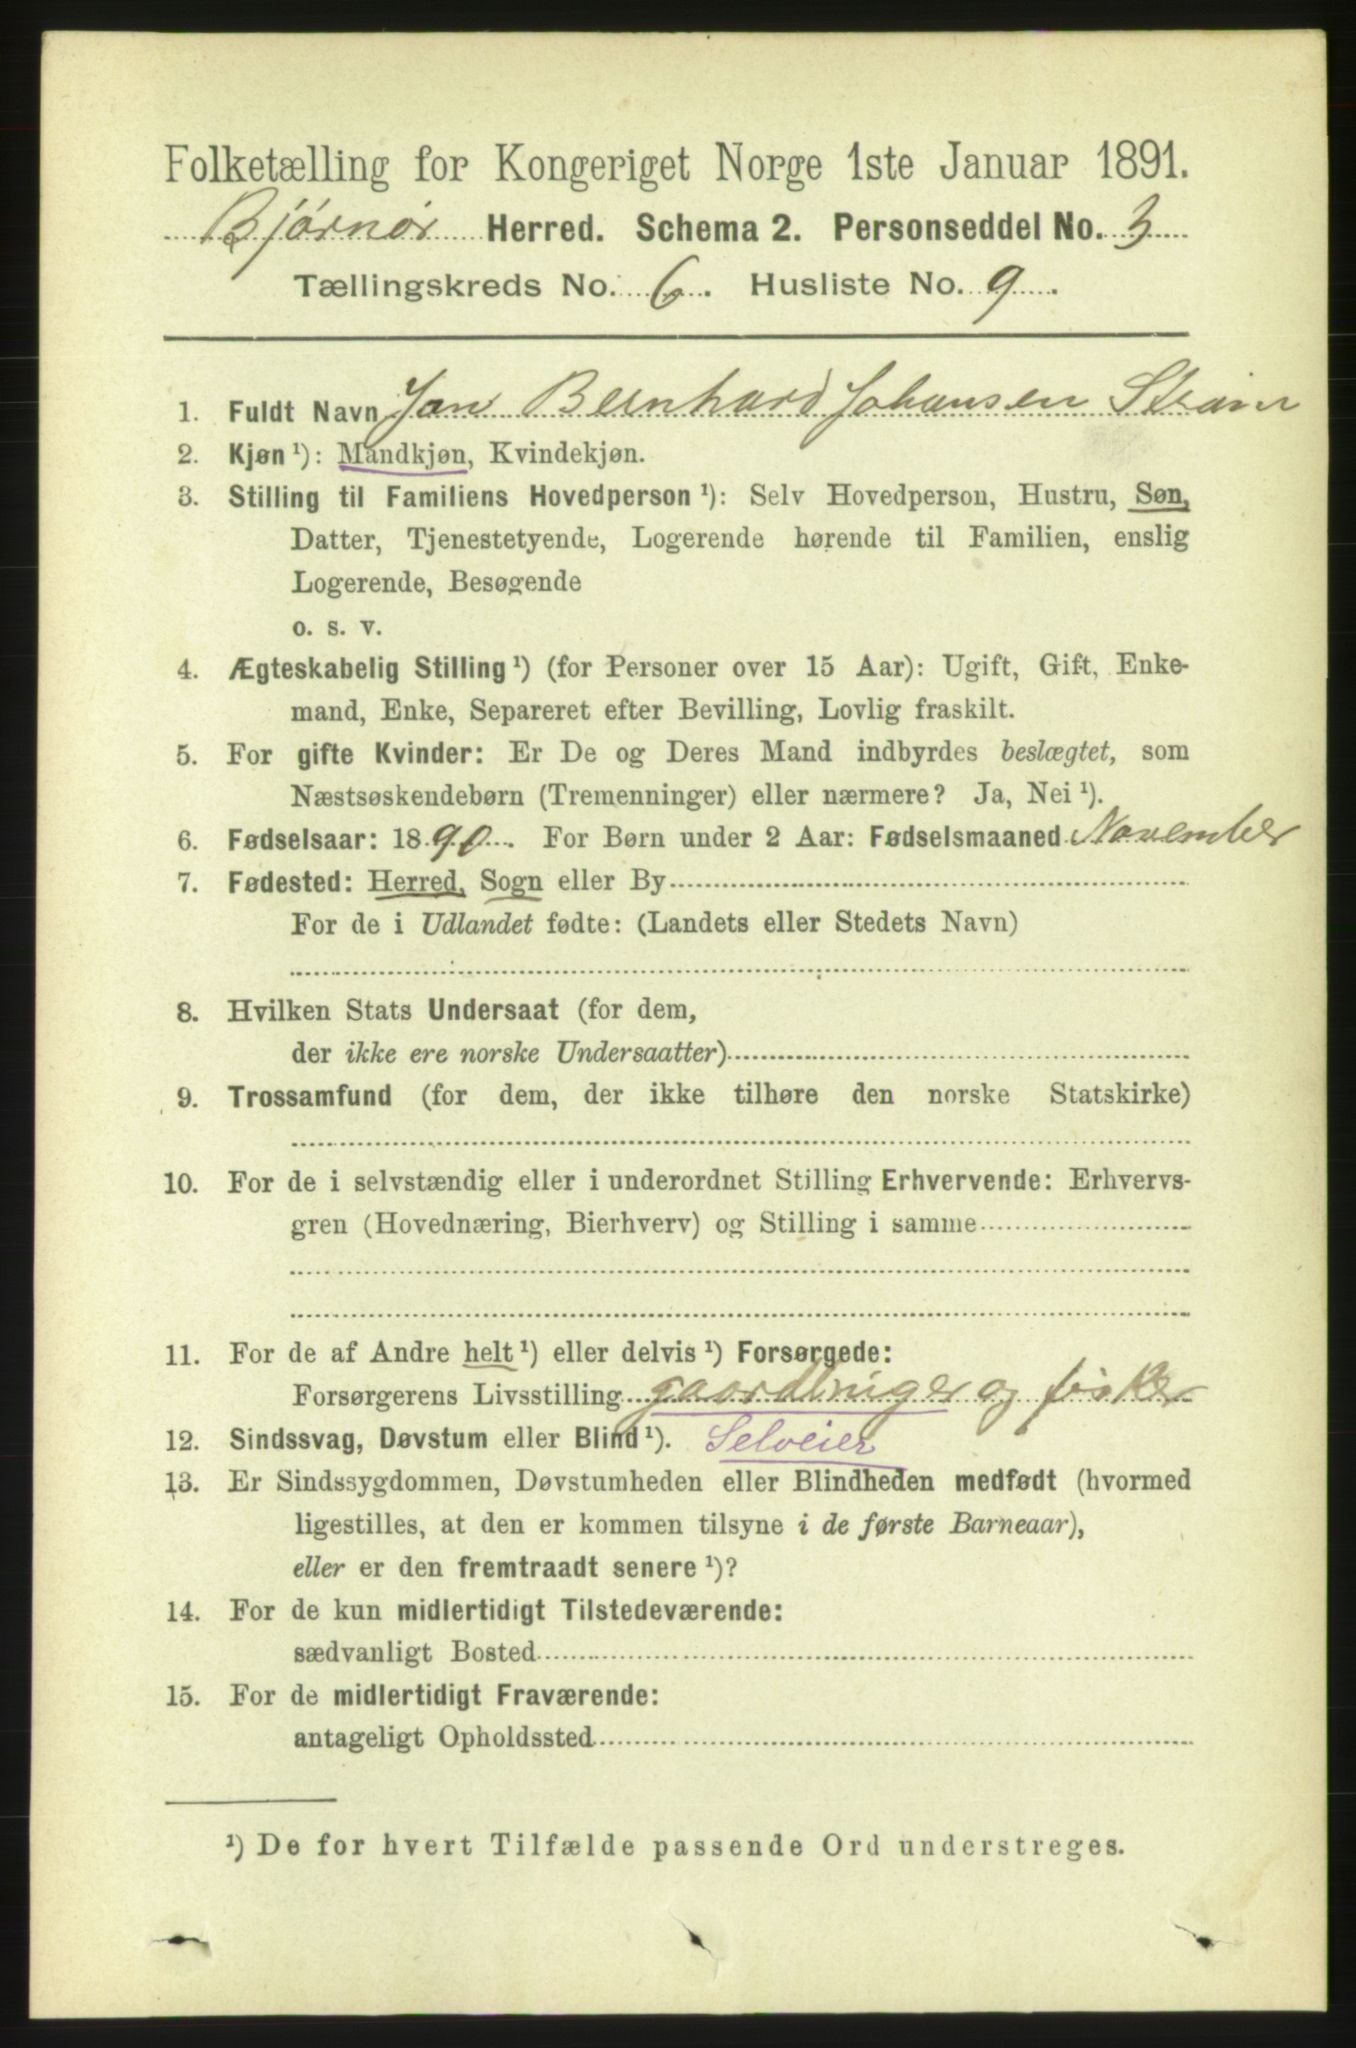 Folketælling for Kongeriget Norge 1ste Januar 1891.
Bjørnør Herred. Schema 2. Personseddel No. 3
Tællingskreds No. 6. Husliste No. 9.
1. Fuldt Navn Jan Bernhard Johansen
2. Kjøn ¹): Mandkjøn, Kvindekjøn.
3. Stilling til Familiens Hovedperson ¹): Selv Hovedperson, Hustru, Søn,
Datter, Tjenestetyende, Logerende hørende til Familien, enslig
Logerende, Besøgende
o. s. v.
4. Ægteskabelig Stilling ¹) (for Personer over 15 Aar): Ugift, Gift, Enke-
mand, Enke, Separeret efter Bevilling, Lovlig fraskilt.
5. For gifte Kvinder: Er De og Deres Mand indbyrdes beslægtet, som
Næstsøskendebørn (Tremenninger) eller nærmere? Ja, Nei ¹).
6. Fødselsaar: 1890. For Børn under 2 Aar: Fødselsmaaned November
7. Fødested: Herred, Sogn eller By
For de i Udlandet fødte: (Landets eller Stedets Navn)
8. Hvilken Stats Undersaat (for dem,
der ikke ere norske Undersaatter)
9. Trossamfund (for dem, der ikke tilhøre den norske Statskirke)
10. For de i selvstændig eller i underordnet Stilling Erhvervende: Erhvervs-
gren (Hovednæring, Bierhverv) og Stilling i samme
11. For de af Andre helt ¹) eller delvis ¹) Forsørgede:
Forsørgerens Livsstilling gaardbruger og fisker
12. Sindssvag, Døvstum eller Blind ¹). Selveier
13. Er Sindssygdommen, Døvstumheden eller Blindheden medfødt (hvormed
ligestilles, at den er kommen tilsyne i de første Barneaar),
eller er den fremtraadt senere ¹)?
14. For de kun midlertidigt Tilstedeværende:
sædvanligt Bosted
15. For de midlertidigt Fraværende:
antageligt Opholdssted
¹) De for hvert Tilfælde passende Ord understreges.